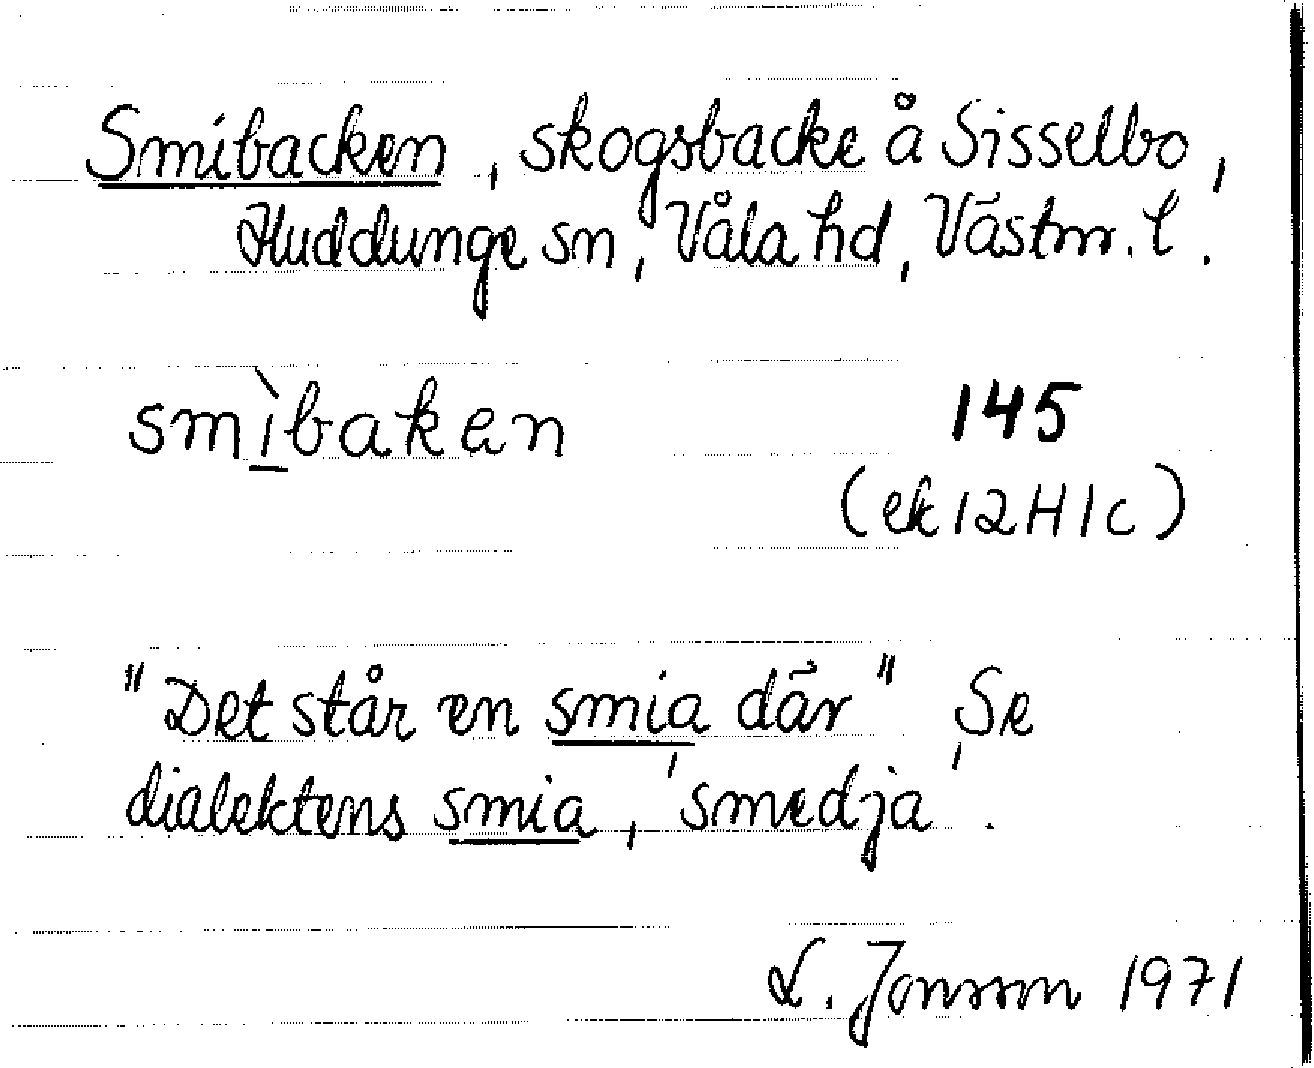 Smibacken, skogsbacke å Sisselbo,
Huddunge sn, Våla hd, Västm. l.
smìbaken
145
(ek 12H1c)
"Det står en smia där" Se
dialektens smia, 'smedja'.
L. Jonsson 1971